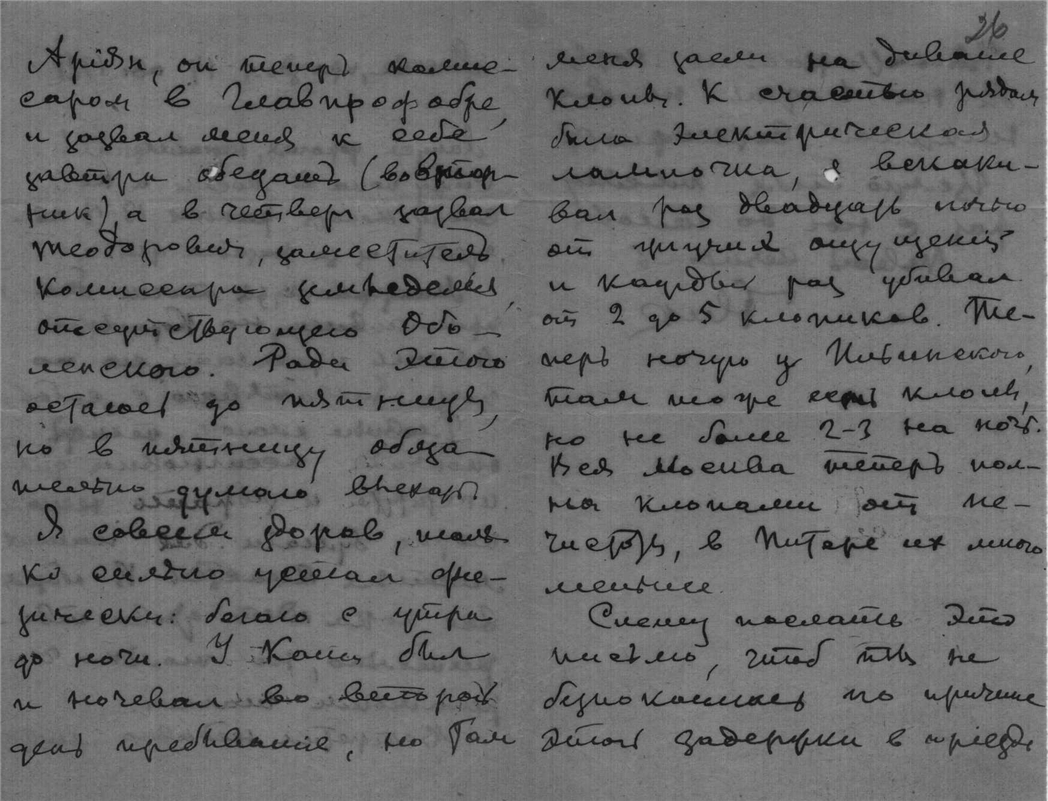 Аріян, он теперь комис-
саром в Главпрофобре,
и зазвал меня к себе
завтра обедать (во втор-
ник), а в четверг зазвал
Теодорович, заместитель
комиссара земледелия,
отсутствующего Обо-
ленского. Ради этого
остаюсь до пятницы,
но в пятницу обяза-
тельно думаю выехать.
Я совсем здоров, толь-
ко сильно устал физи-
чески: бегаю с утра
до ночи. У Кащ был
и ночевал во второй
день пребывание, но там
26
меня заели на диване
клопы. К счастью рядом
была электрическая
лампочка, я вскаки-
вал раз двадцать ночью
от жгучих ощущений
и каждый раз убивал
от 2 до 5 клопиков. Те-
перь ночую у Ильинского,
там тоже есть клопы,
но не более 2-3 на ночь.
Вся Москва теперь пол-
на клопами от не-
чистоты, в Питере их много
меньше.
Спешу послать это
письмо, чтоб ты не
безпокоилась по причине
этой задержки в приезде